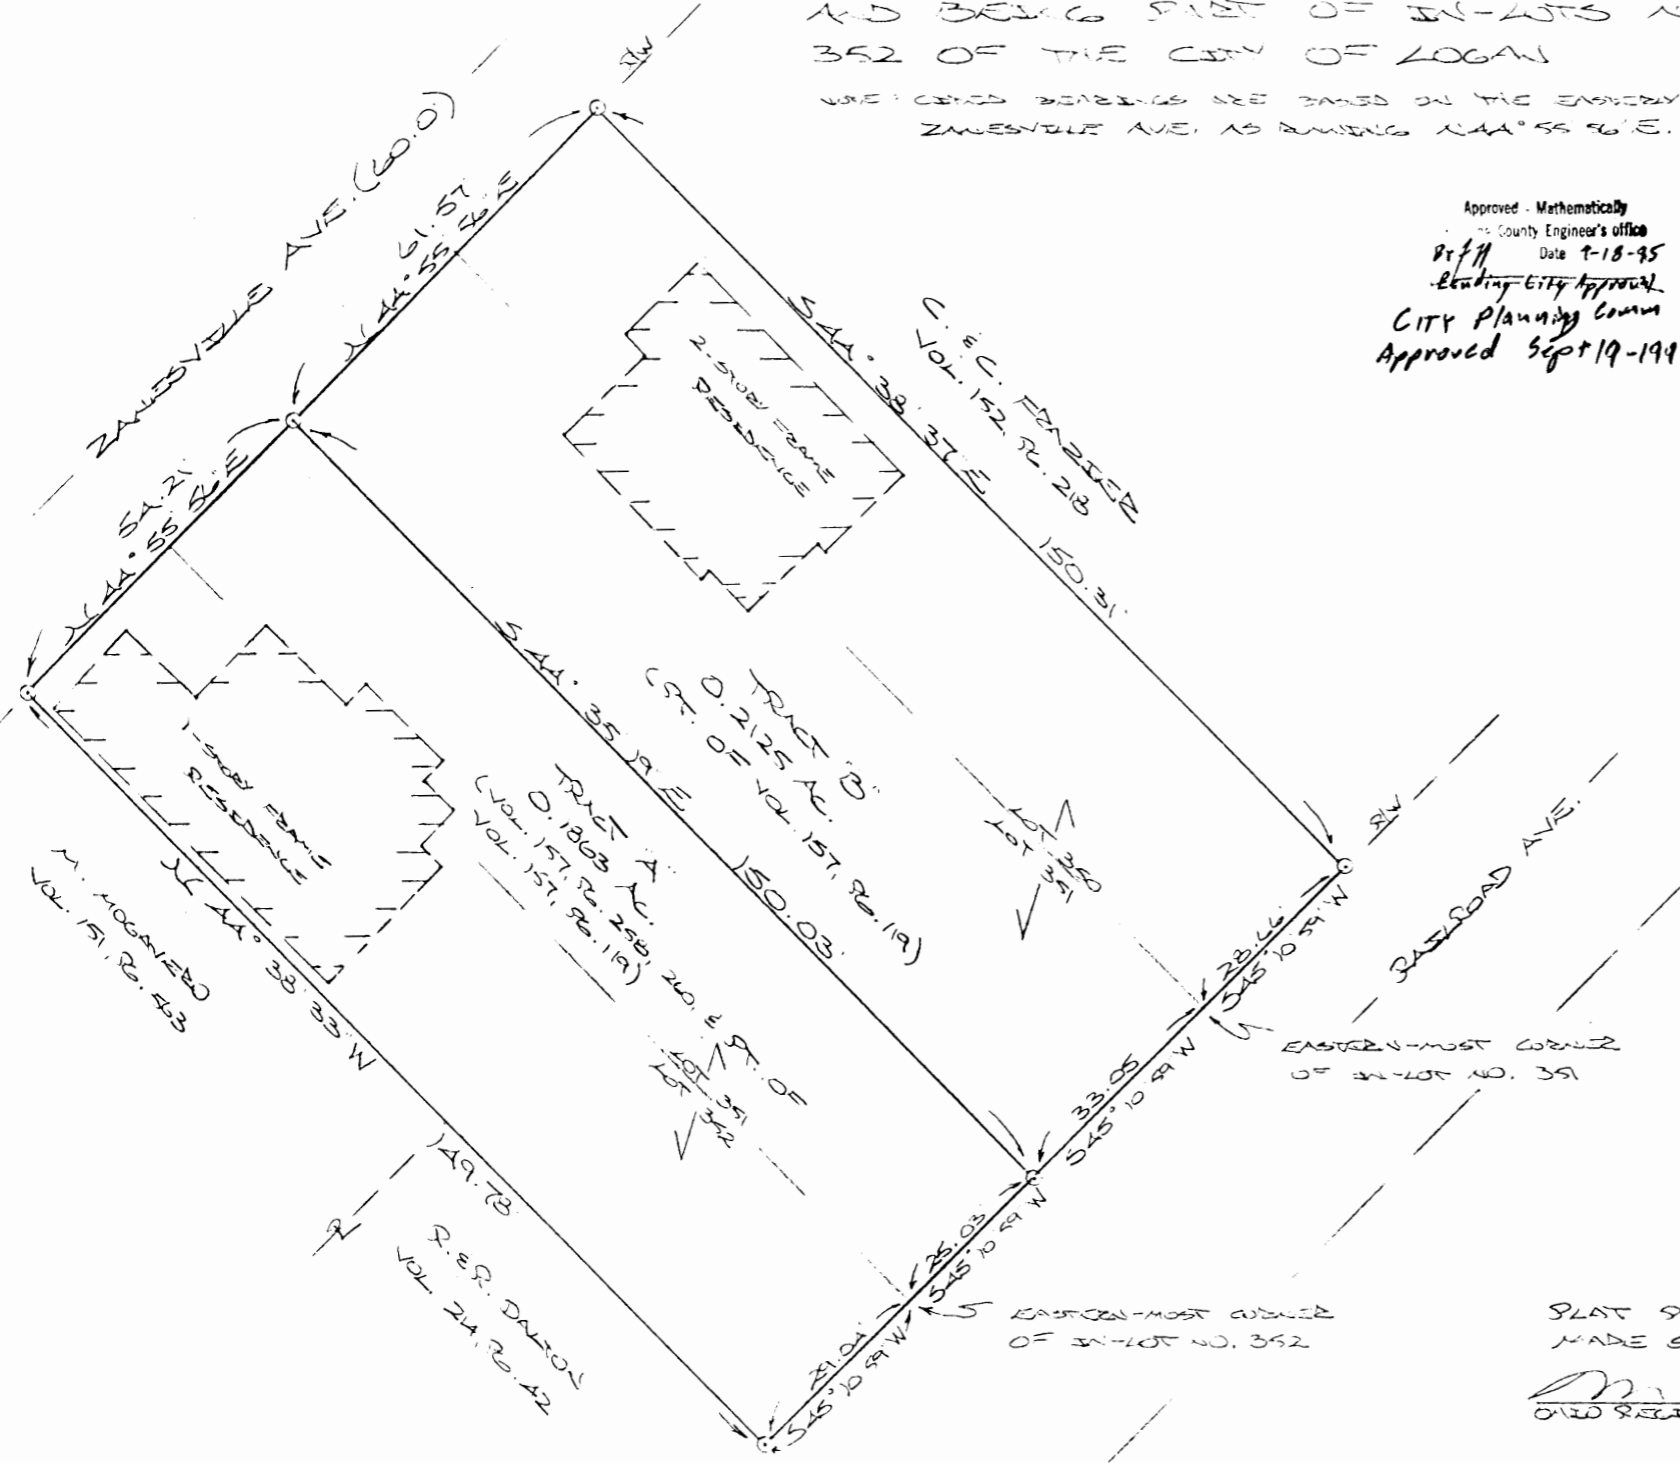 AND BEING PART OF IN-LOTS N
352 OF THE CITY OF LOGAN
NOTE: CITED BEARINGS ARE BASED ON THE EASTERLY
ZANESVILLE AVE. AS RUNNING N44°55'56"E.
Approved - Mathematically
County Engineer's office
Date 9-18-95
Pending City Approval
CITY Planning Comm
Approved Sept 19-199
R/W
ZANESVILLE AVE. (60.0')
61.57'
N 44° 55' 56" E
54.21'
N 44° 55' 56" E
2-STORY FRAME
RESIDENCE
S 44° 38' 37" E
150.31'
C. & C. FRAZIER
VOL. 152, PG. 218
1-STORY FRAME
RESIDENCE
S 44° 35' 19" E
150.03'
TRACT "B"
0.2125 AC.
(PT. OF VOL. 157, PG. 119)
TRACT "A"
0.1863 AC.
(VOL. 157, PG. 258, 260, & PT. OF
VOL. 157, PG. 119)
LOT 350
LOT 351
LOT 351
LOT 352
M. MOGAVERO
VOL. 151, PG. 563
N 44° 38' 33" W
149.78'
R. & R. DALTON
VOL. 214, PG. 42
R/W
RAILROAD AVE.
28.66'
S45° 10' 59" W
33.05'
S45° 10' 59" W
25.03'
S45° 10' 59" W
29.04'
S45° 10' 59" W
EASTERN-MOST CORNER
OF IN-LOT NO. 351
EASTERN-MOST CORNER
OF IN-LOT NO. 352
PLAT P
MADE S
OHIO REGI